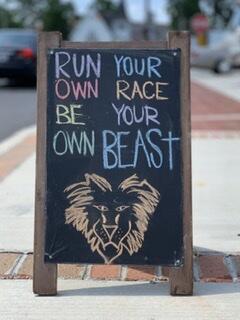 RUN YOUR
OWN RACE
BE YOUR
OWN BEAST